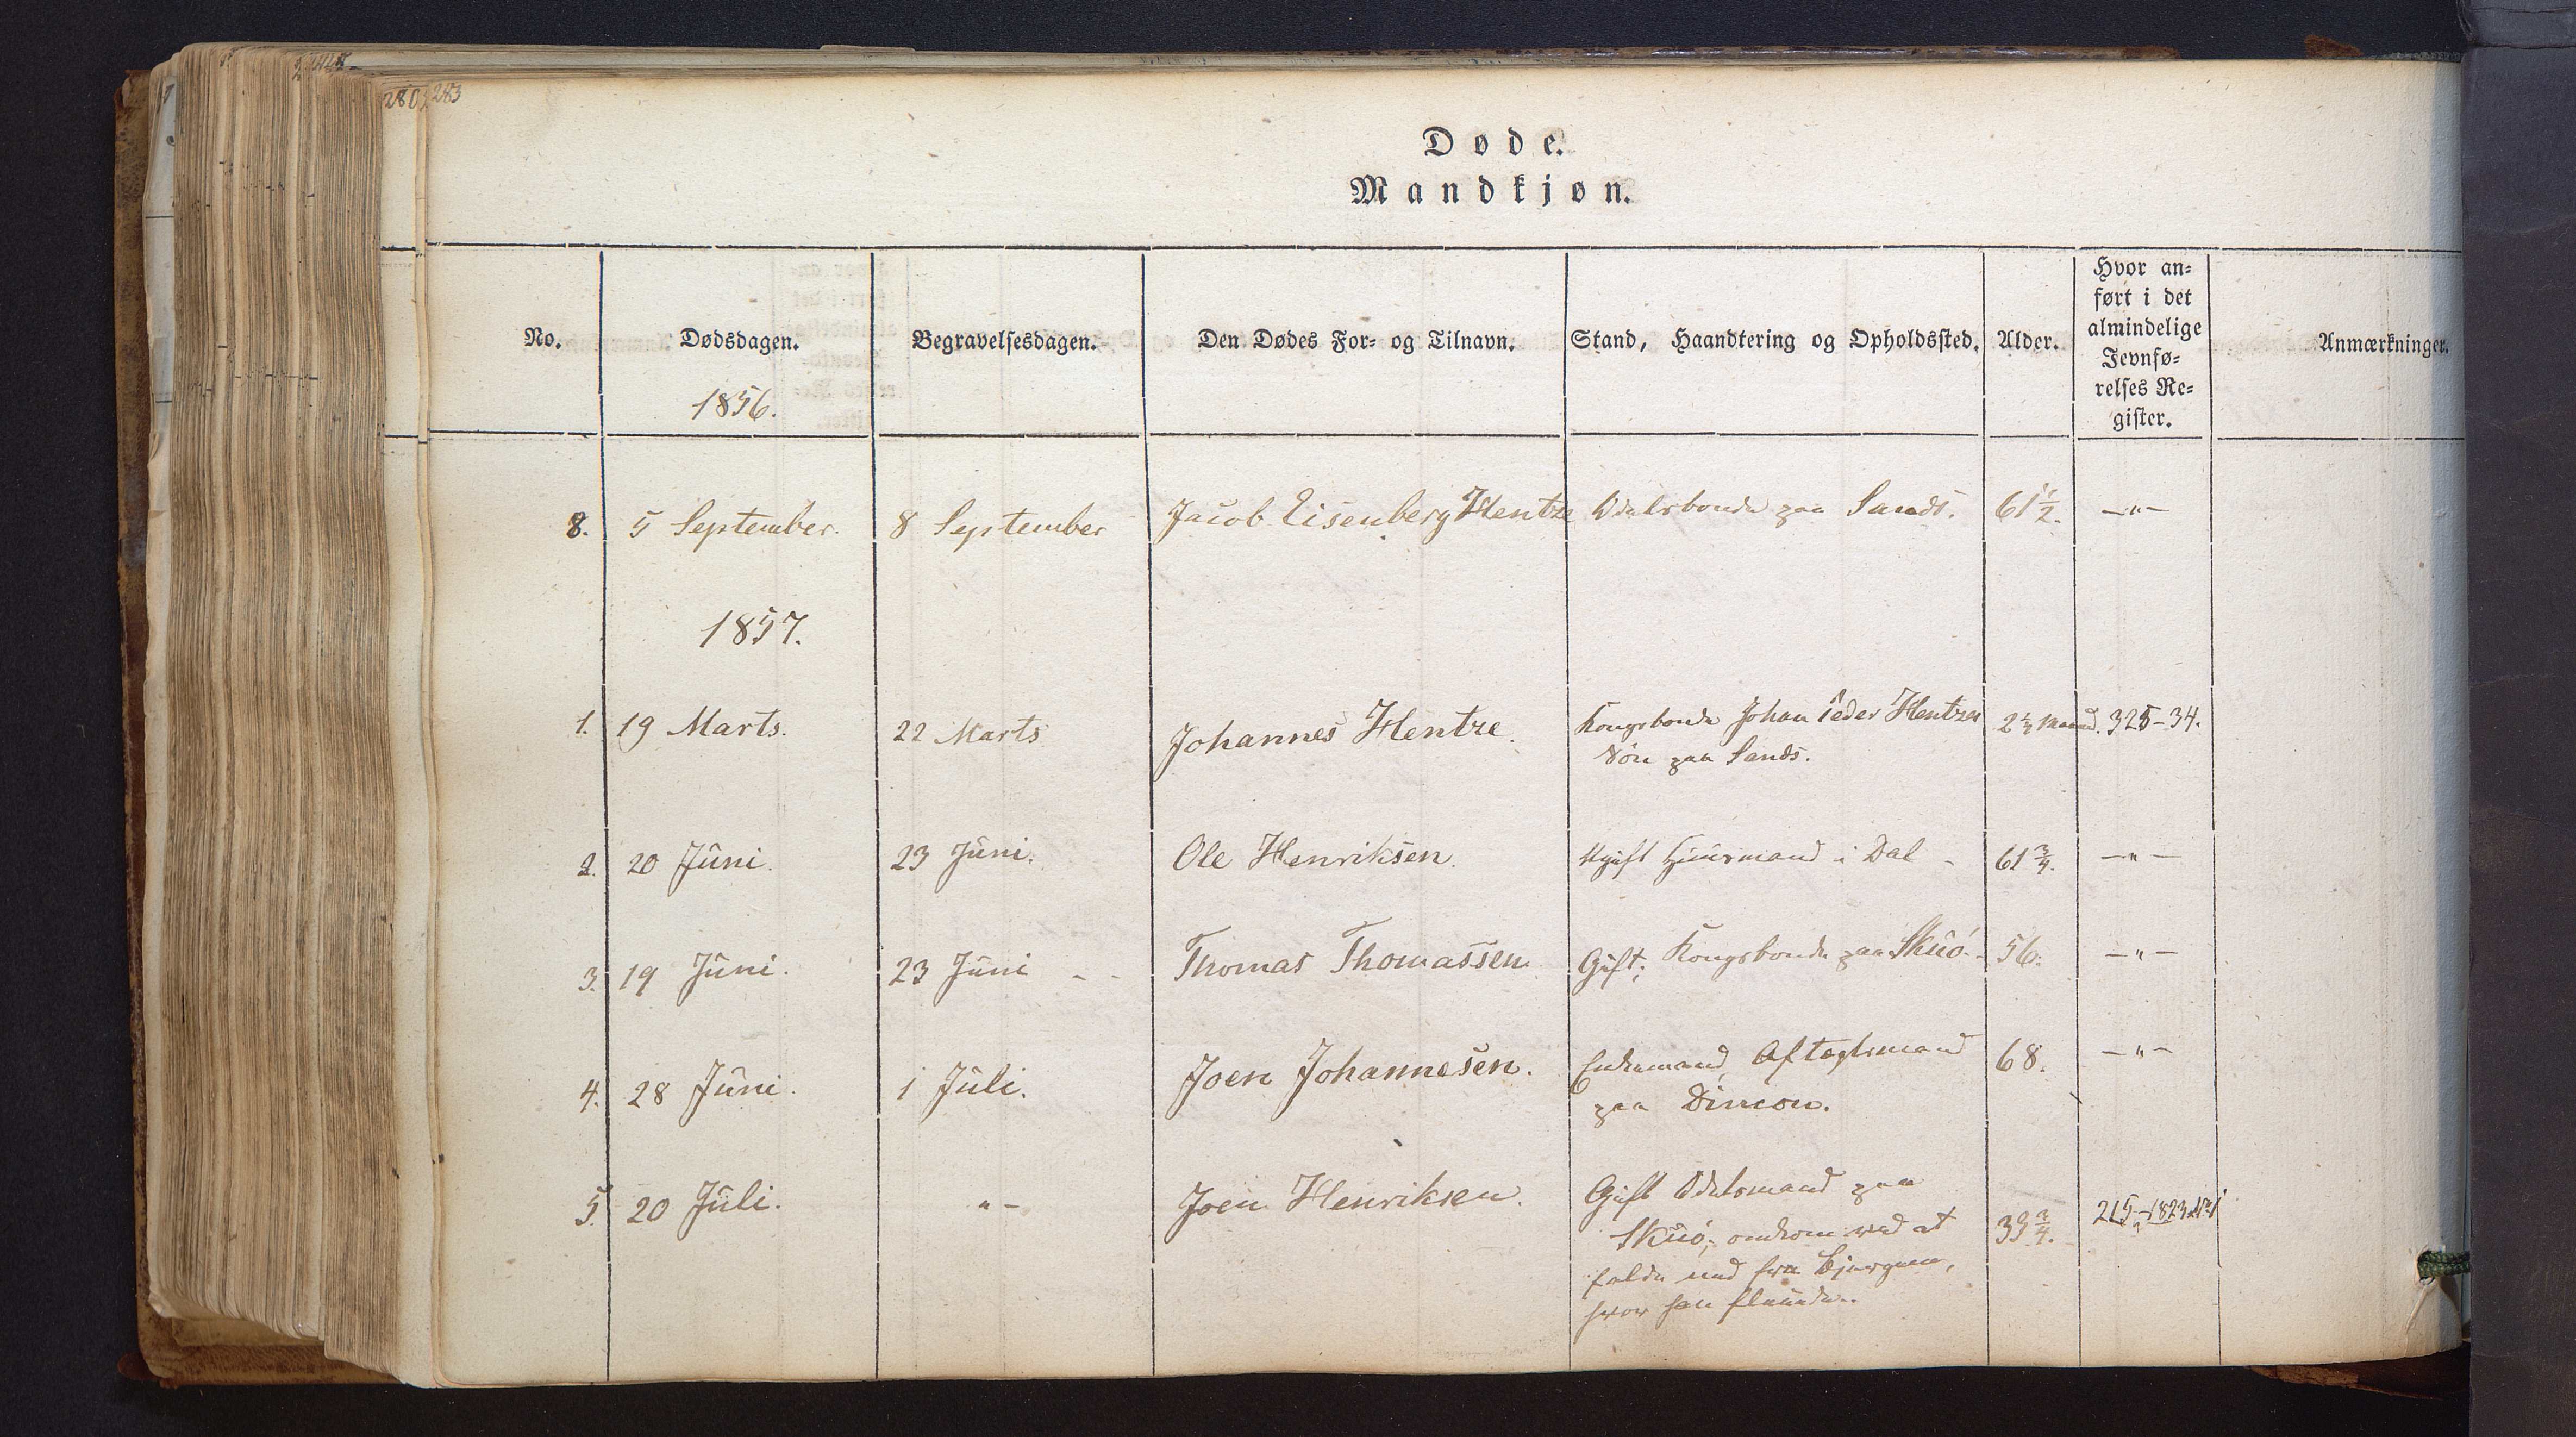 280 283
Døde.
Mandkjøn.
No. Dødsdagen. Begravelsesdagen. Den Dødes For- og Tilnavn. Stand, Haandtering og Opholdssted. Alder. Hvor an-
ført i det
almindelige
Jevnfø-
relses Re-
gister. Anmærkninger.
1856.
8. 5 September. 8 September Jacob Eisenberg Hentze Odelsbonde paa Sands. 61½. —„—
1857.
1. 19 Marts. 22 Marts Johannes Hentze. Kongsbonde Johan Peder Hentzes 325-34.
Søn paa Sands.
2. 20 Juni. 23 Juni. Ole Henriksen. Ugift Huusmand i Dal - 61¾. —„—
3. 19 Juni. 23 Juni - - Thomas Thomassen Gift; Kongsbonde paa Skuø.- 56. —„—
4. 28 Juni. 1 Juli. Joen Johannesen. Enkemand, Aftægtsmand 68. —„—
paa Dimon.
5. 20 Juli. „ - Joen Henriksen. Gift Odelsmand paa
Skuø; omkom ved at 33¾. 215
falde ned fra Bjergene,
hvor han